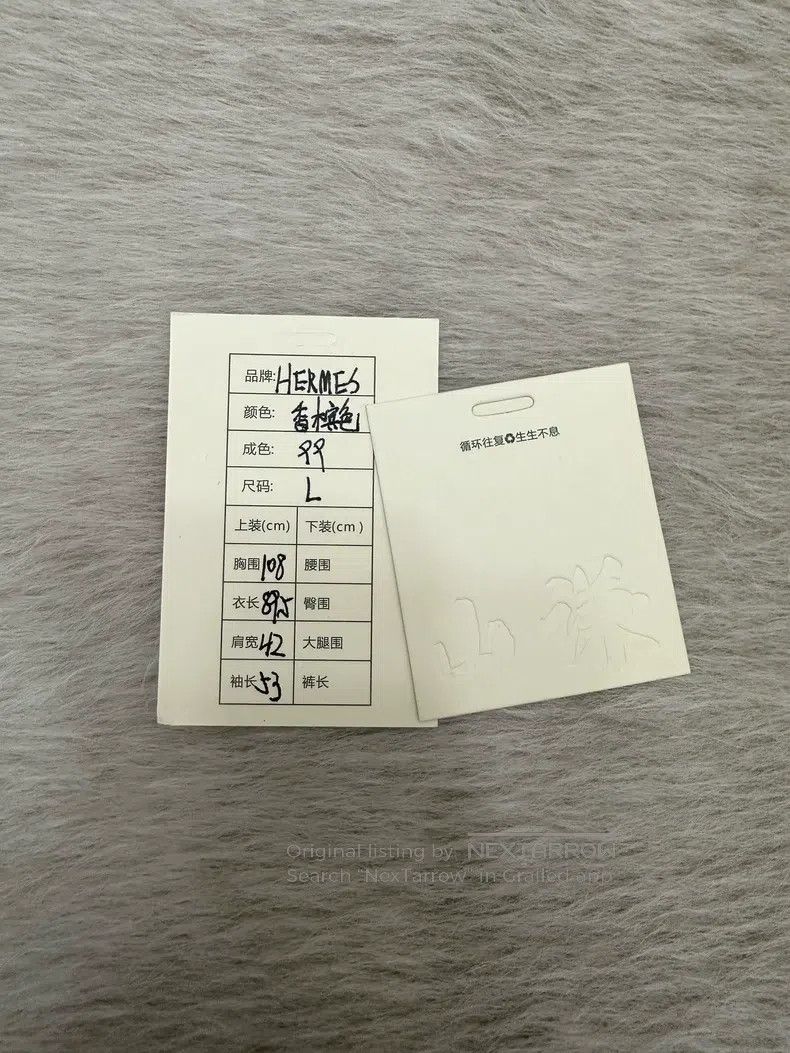 品牌: HERMES
颜色: 香槟色
成色: 99
尺码: L
上装(cm) 下装(cm)
胸围 108 腰围
衣长 89.5 臀围
肩宽 42 大腿围
袖长 53 裤长
循环往复♻生生不息
Original listing by NEXTARROW
Search "NexTarrow" in Grailed app